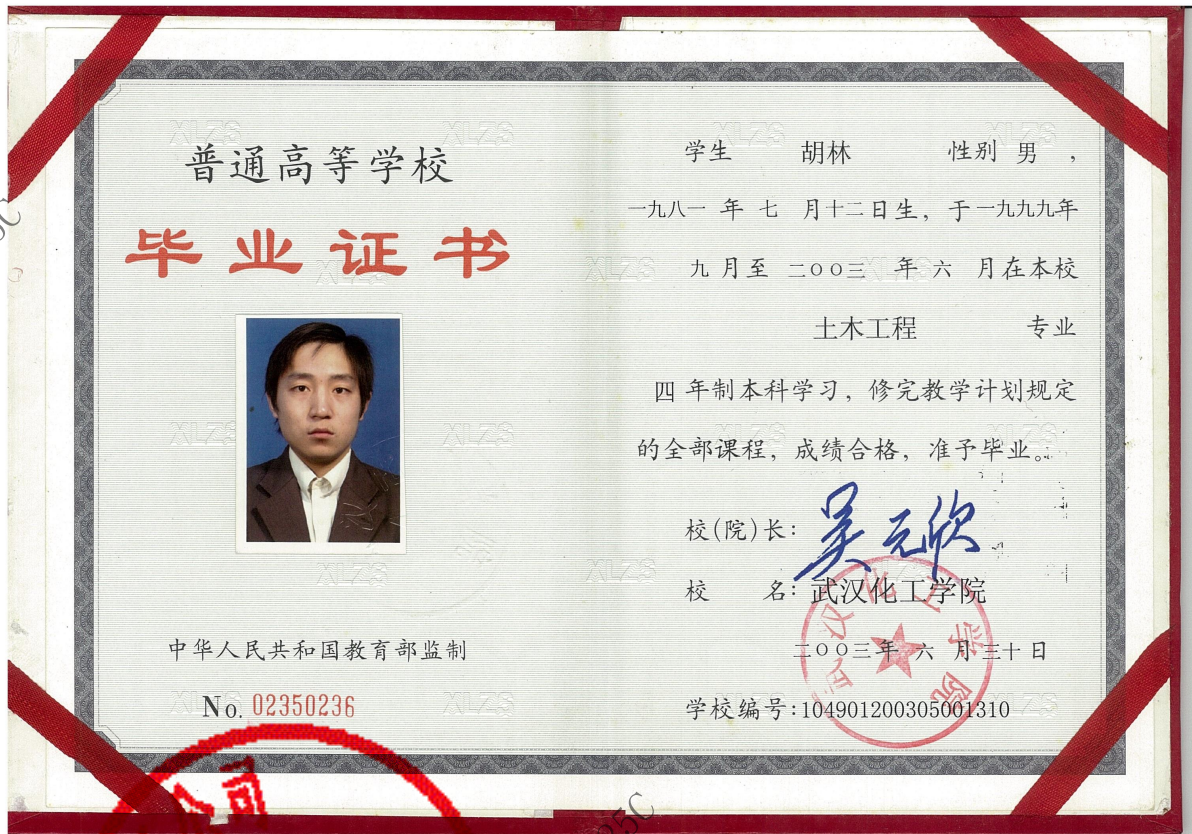 普通高等学校
毕业证书
中华人民共和国教育部监制
No. 02350236
学生 胡林 性别 男，
一九八一年七月十二日生，于一九九九年
九月至二〇〇三年六月在本校
土木工程 专业
四年制本科学习，修完教学计划规定
的全部课程，成绩合格，准予毕业。
校（院）长：吴元欣
校 名：武汉化工学院
二〇〇三年六月三十日
学校编号：104901200305001310
武汉化工学院
公司
XLZS